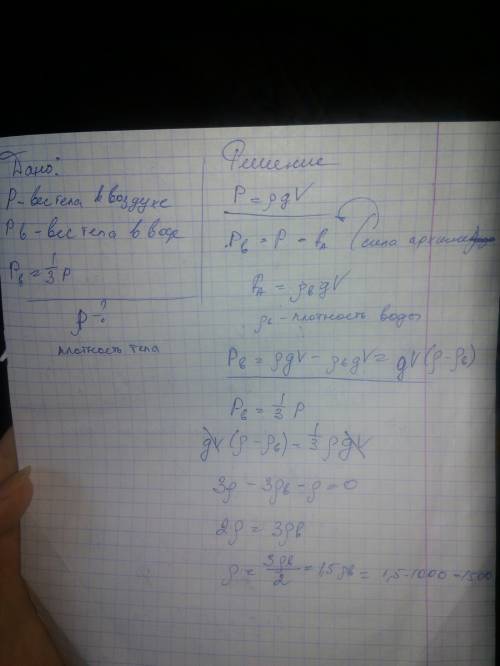 Дано:
P - вес тела в воздухе
Pв - вес тела в воде
Pв = 1/3 P
ρ - ?
плотность тела
Решение
P = ρgV
Pв = P - FА (сила архимеда
FА = ρвgV
ρв - плотность воды
Pв = ρgV - ρвgV = gV(ρ-ρв)
Pв = 1/3 P
gV(ρ-ρв) = 1/3 ρgV
3ρ - 3ρв - ρ = 0
2ρ = 3ρв
ρ = 3ρв/2 = 1,5ρв = 1,5·1000 = 1500